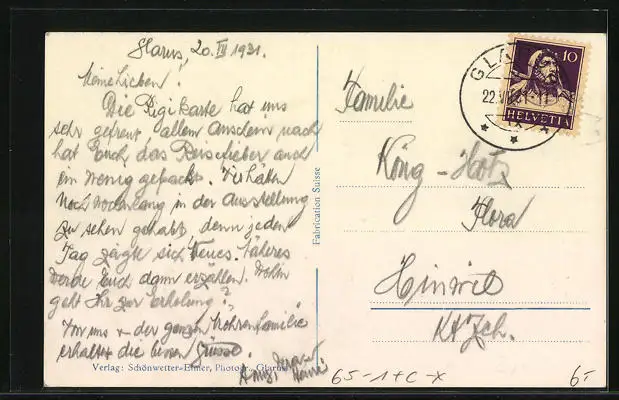 Glarus, 20. VII 1931.
Meine Lieben!
Die Rigikarte hat uns
sehr gefreut. Allem Anschein nach
hat Euch das Reisefieber auch
ein wenig gepackt. Wir hätten
noch wochenlang in der Ausstellung
zu sehen gehabt, denn jeden
Tag zeigte sich Neues. Näheres
werde Euch dann erzählen. Wohin
geht Ihr zur Erholung?
Von uns + der ganzen
erhaltet die Grüsse.
Verlag: Schönwetter-Elmer, Photogr., Glarus
Fabrication Suisse
GLARUS
22.VII.31
10
HELVETIA
Familie
König-Hotz
Flora
Hinwil
Kt. Zch.
65-1+C-x
6.-